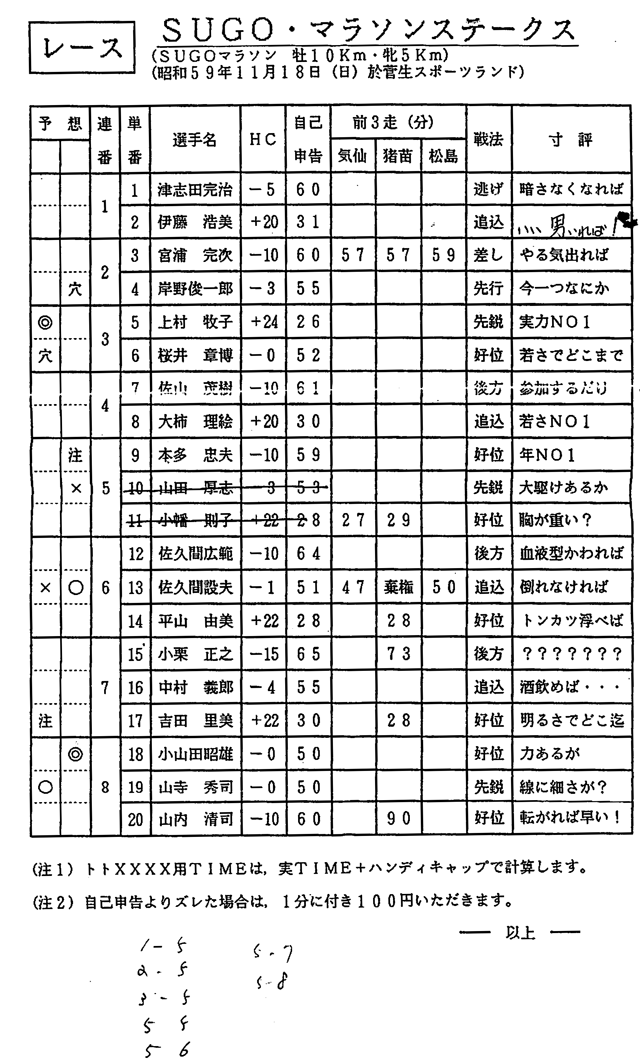 レース
SUGO・マラソンステークス
(SUGOマラソン 牡10Km・牝5Km)
(昭和59年11月18日(日)於菅生スポーツランド)
予想 連番 単番 選手名 HC 自己申告 前3走(分) 戦法 寸評
気仙 猪苗 松島
1 1 津志田完治 −5 60 逃げ 暗さなくなれば
2 伊藤 浩美 +20 31 追込 いい男いれば!
2 3 宮浦 完次 −10 60 57 57 59 差し やる気出れば
穴 4 岸野俊一郎 −3 55 先行 今一つなにか
◎ 3 5 上村 牧子 +24 26 先鋭 実力NO1
穴 6 桜井 章博 −0 52 好位 若さでどこまで
4 7 佐山 茂樹 −10 61 後方 参加するだけ
8 大柿 理絵 +20 30 追込 若さNO1
注 5 9 本多 忠夫 −10 59 好位 年NO1
× 10 山田 厚志 −3 53 先鋭 大駆けあるか
11 小幡 則子 +22 28 27 29 好位 胸が重い?
6 12 佐久間広範 −10 64 後方 血液型かわれば
× ○ 13 佐久間設夫 −1 51 47 棄権 50 追込 倒れなければ
14 平山 由美 +22 28 28 好位 トンカツ浮べば
7 15 小栗 正之 −15 65 73 後方 ???????
16 中村 義郎 −4 55 追込 酒飲めば・・・
注 17 吉田 里美 +22 30 28 好位 明るさでどこ迄
◎ 8 18 小山田昭雄 −0 50 好位 力あるが
○ 19 山寺 秀司 −0 50 先鋭 線に細さが?
20 山内 清司 −10 60 90 好位 転がれば早い!
(注1)トトXXXX用TIMEは,実TIME+ハンディキャップで計算します。
(注2)自己申告よりズレた場合は,1分に付き100円いただきます。
── 以上 ──
1-5 5-7
2-5 5-8
3-5
5 5
5 6